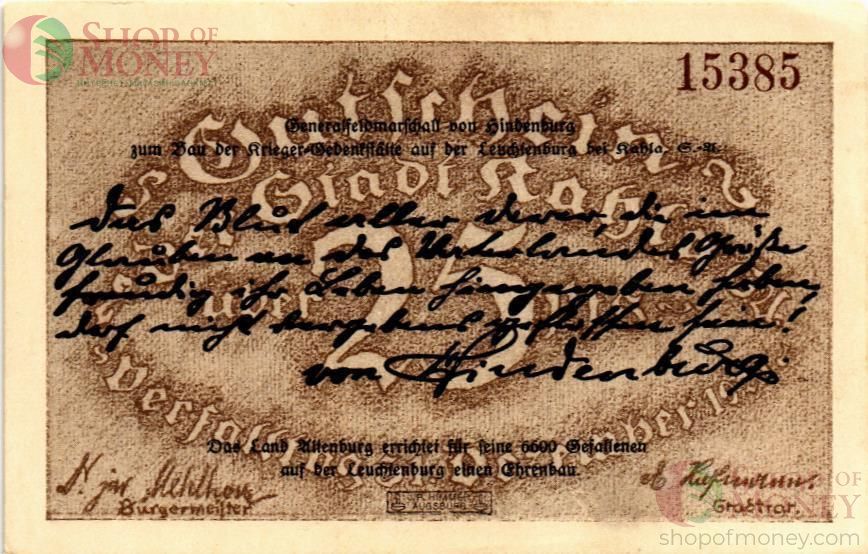 SHOP OF
MONEY
15385
Gutschein
Generalfeldmarschall von Hindenburg
zum Bau der Krieger-Gedenkstätte auf der Leuchtenburg bei Kahla, S.-A.
Stadt Kahla
Das Blut aller derer, die im
Glauben an des Vaterlandes Größe
freudig ihr Leben hingegeben haben,
darf nicht vergebens geflossen sein!
über 25
von Hindenburg
Das Land Altenburg errichtet für seine 6600 Gefallenen
auf der Leuchtenburg einen Ehrenbau.
Bürgermeister
Stadtrat.
HIMMER
AUGSBURG
SHOP OF
MONEY
shopofmoney.com